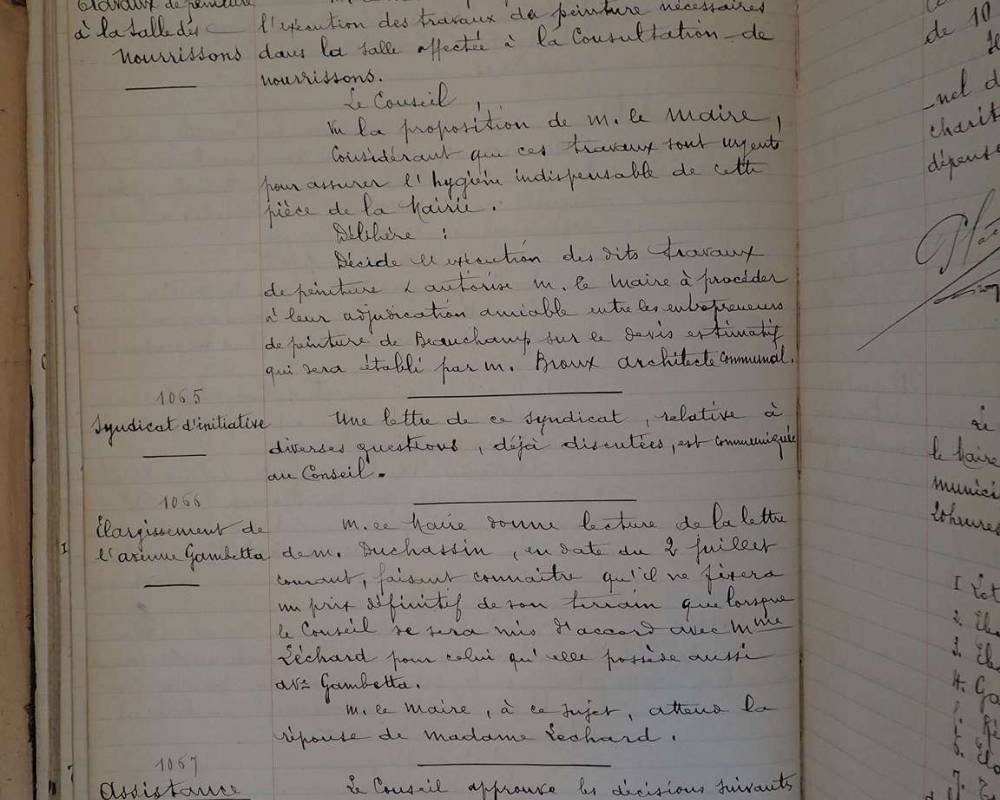 Travaux de peinture
à la salle des
nourrissons
l'exécution des travaux de peinture nécessaires
dans la salle affectée à la Consultation de
nourrissons.
Le Conseil,
Vu la proposition de M. le Maire,
Considérant que ces travaux sont urgents
pour assurer l'hygiène indispensable de cette
pièce de la Mairie.
Délibère :
Décide l'exécution des dits travaux
de peinture & autorise M. le Maire à procéder
à leur adjudication amiable entre les entrepreneurs
de peinture de Beauchamp sur le devis estimatif
qui sera établi par M. Broux architecte communal.
1065
Syndicat d'initiative
Une lettre de ce syndicat, relative à
diverses questions, déjà discutées, est communiquée
au Conseil.
1066
Élargissement de
l'avenue Gambetta
M. le Maire donne lecture de la lettre
de M. Duchassin, en date du 2 Juillet
courant, faisant connaître qu'il ne fixera
un prix définitif de son terrain que lorsque
le Conseil se sera mis d'accord avec Mme
Léchard pour celui qu'elle possède aussi
ave Gambetta.
M. le Maire, à ce sujet, attend la
réponse de Madame Léchard.
1067
Assistance
Le Conseil approuve les décisions suivants
de 10
nel d
charit
dépense
Le
le Maire
munici
20 heures
1
2.
3.
4. Ga
5.
7.